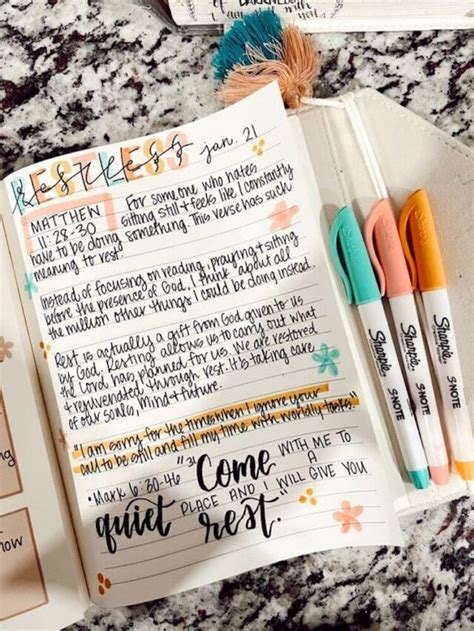 RESTLESS
restless
jan. 21
MATTHEW
11:28-30
For someone who hates
sitting still + feels like I constantly
have to be doing something. This verse has such
meaning to rest.
Instead of focusing on reading, praying + sitting
before the presence of God, I think about all
the million other things I could be doing instead.
Rest is actually a gift from God given to us
by God. Resting allows us to carry out what
the Lord has planned for us. We are restored
& rejuvenated through rest. It is taking care
of our souls, mind + future.
"I am sorry for the times when I ignore your
call to be still and fill my time with worldly tasks."
"Mark 6:30-46 "31 Come WITH ME TO
A
quiet PLACE AND I WILL GIVE YOU
rest."
Sharpie S-NOTE
Sharpie S-NOTE
Sharpie S-NOTE
now